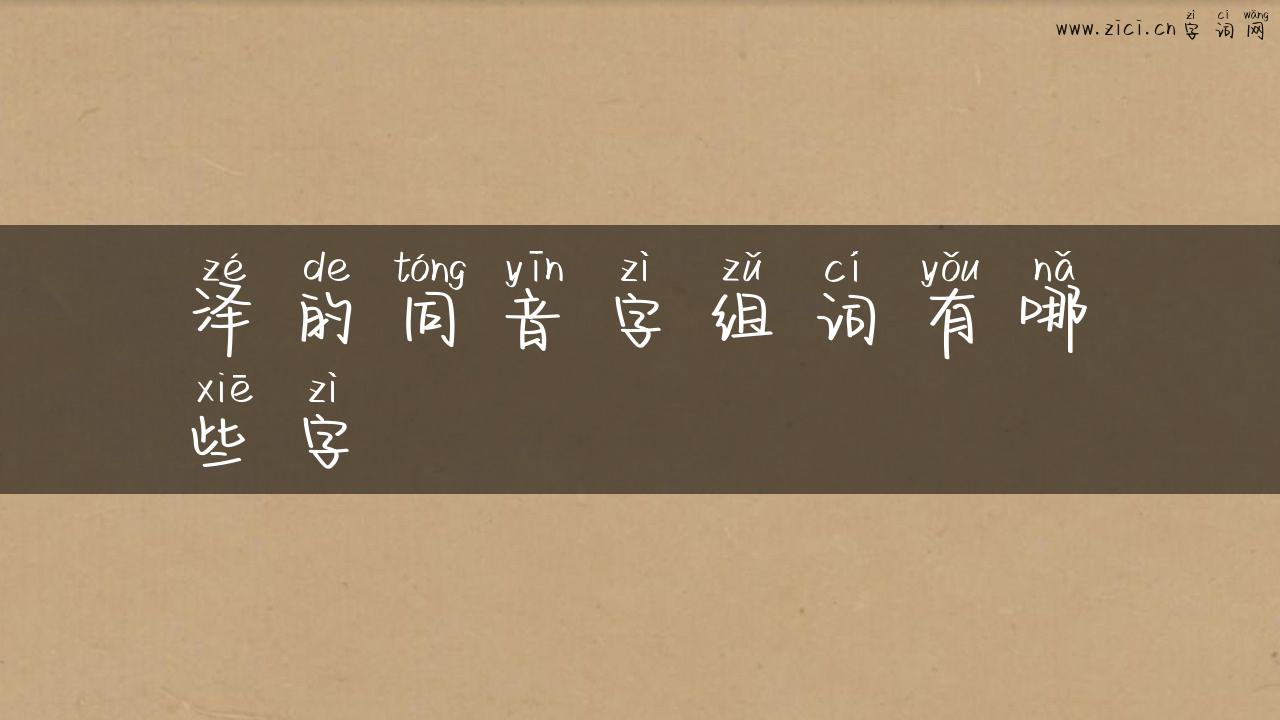 zì cí wǎng
www.zici.cn 字词网
zé de tóng yīn zì zǔ cí yǒu nǎ
泽的同音字组词有哪
xiē zì
些字